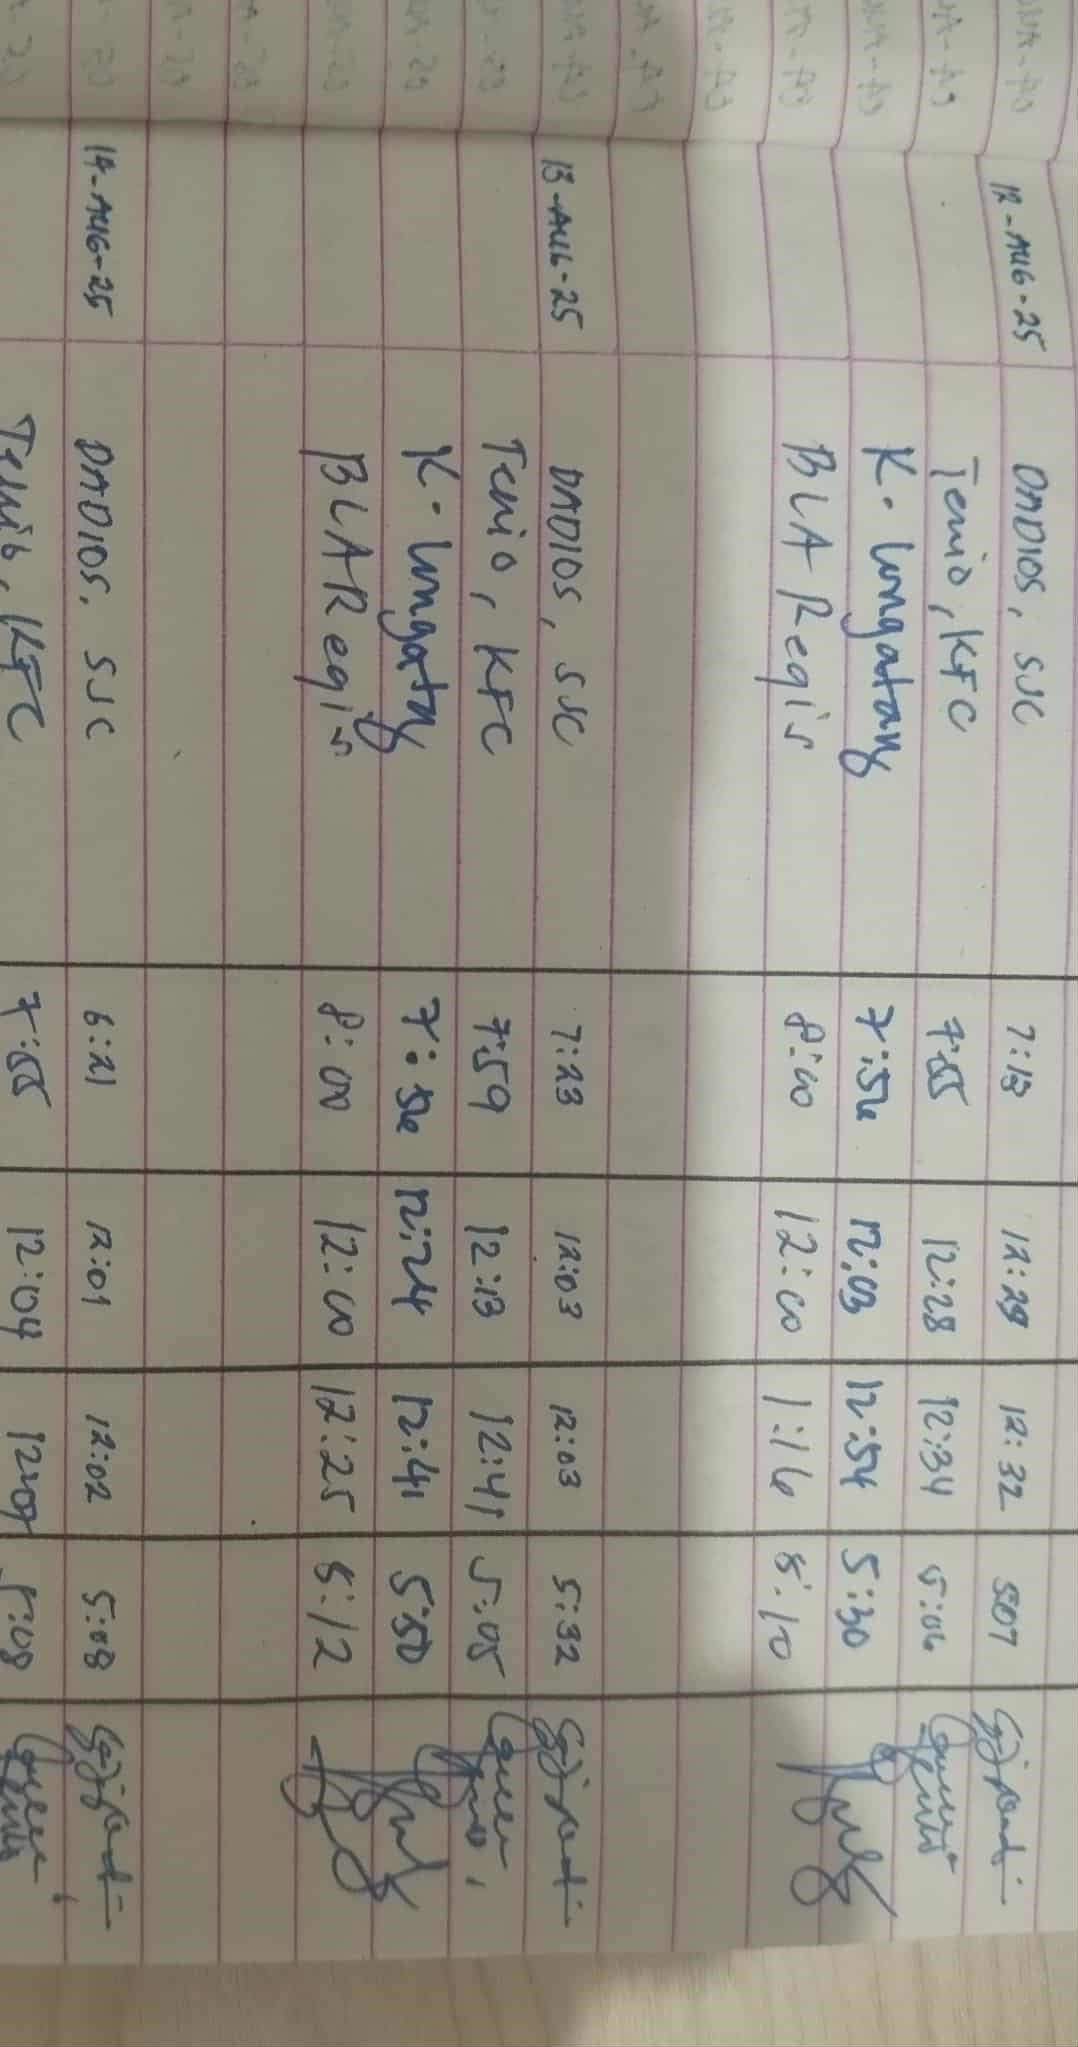 12-AUG-25 DADIOS, SJC 7:13 12:29 12:32 5:07
Tenio, KFC 7:55 12:28 12:34 5:06
K. Longatang 7:56 12:03 12:54 5:30
BLA Regis 8:00 12:00 1:16 8:10
13-AUG-25 DADIOS, SJC 7:23 12:03 12:03 5:32
Tenio, KFC 7:59 12:13 12:41 5:05
K. Longatang 7:56 12:24 12:41 5:50
BLA Regis 8:00 12:00 12:25 8:12
14-AUG-25 DADIOS, SJC 6:21 12:01 12:02 5:08
Tenio, KFC 7:55 12:04 12:09 5:08